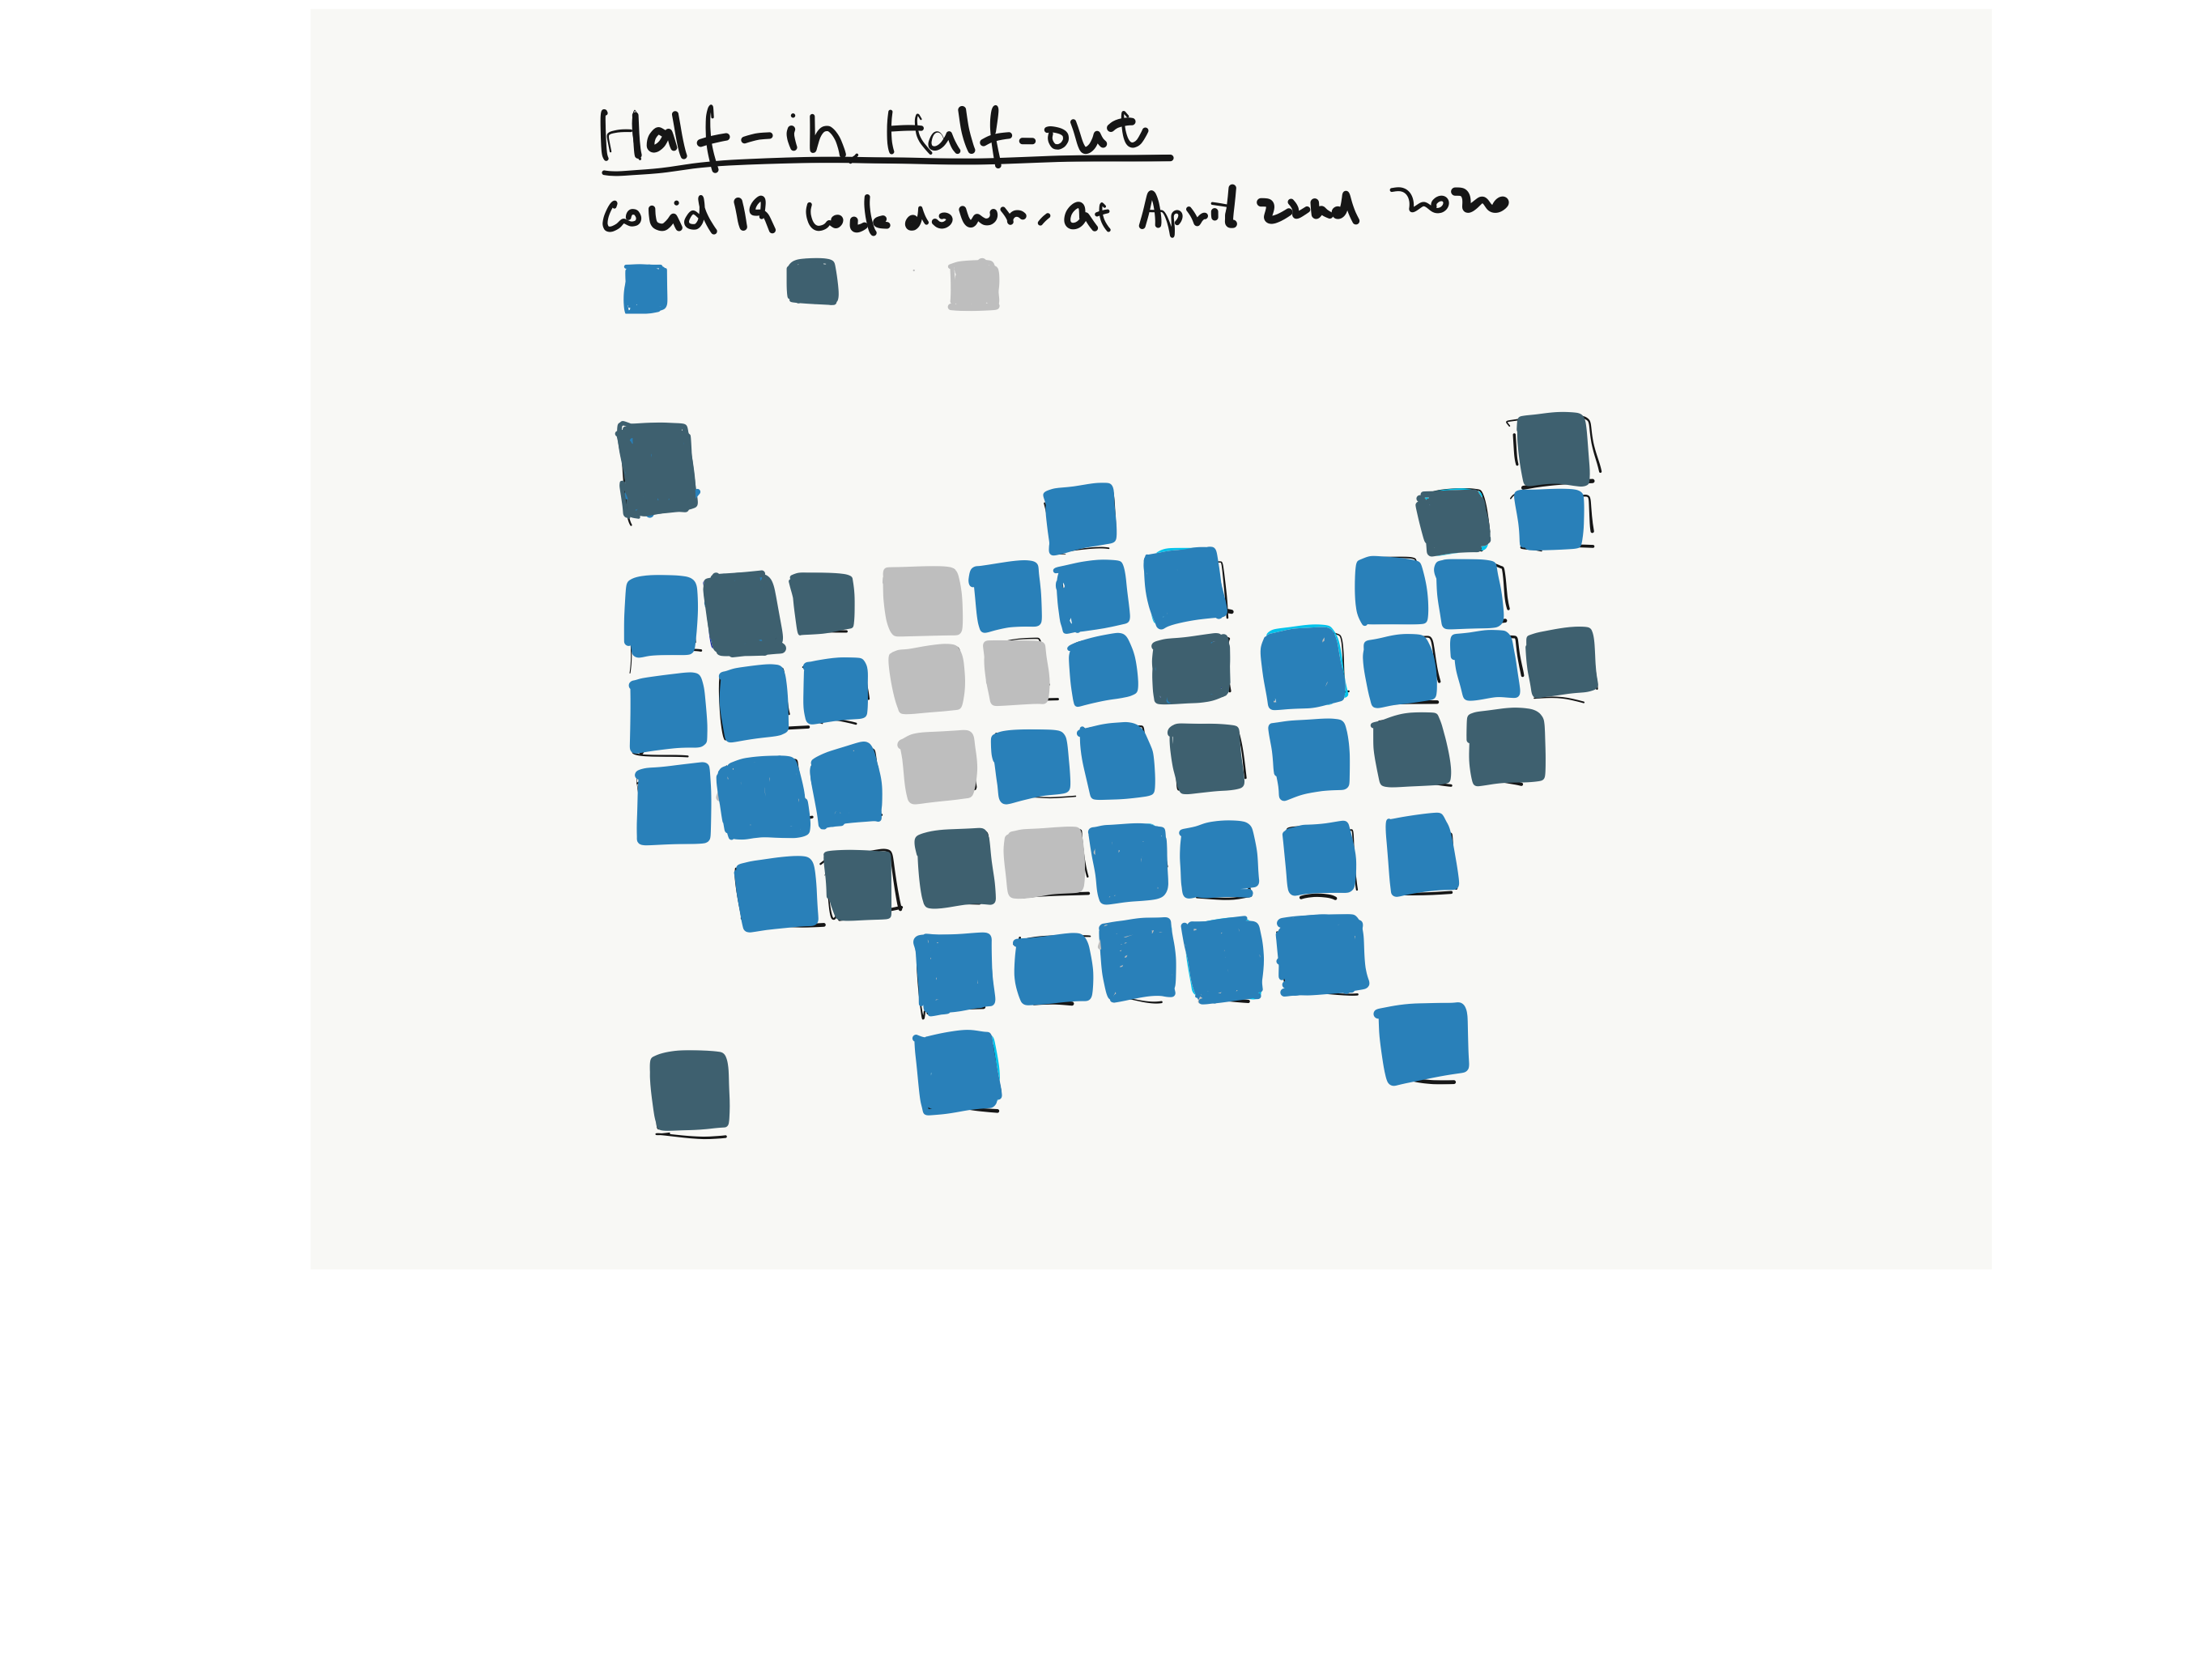 Half-in Half-out
Covid 19 Lockdown, at April 22nd 2020